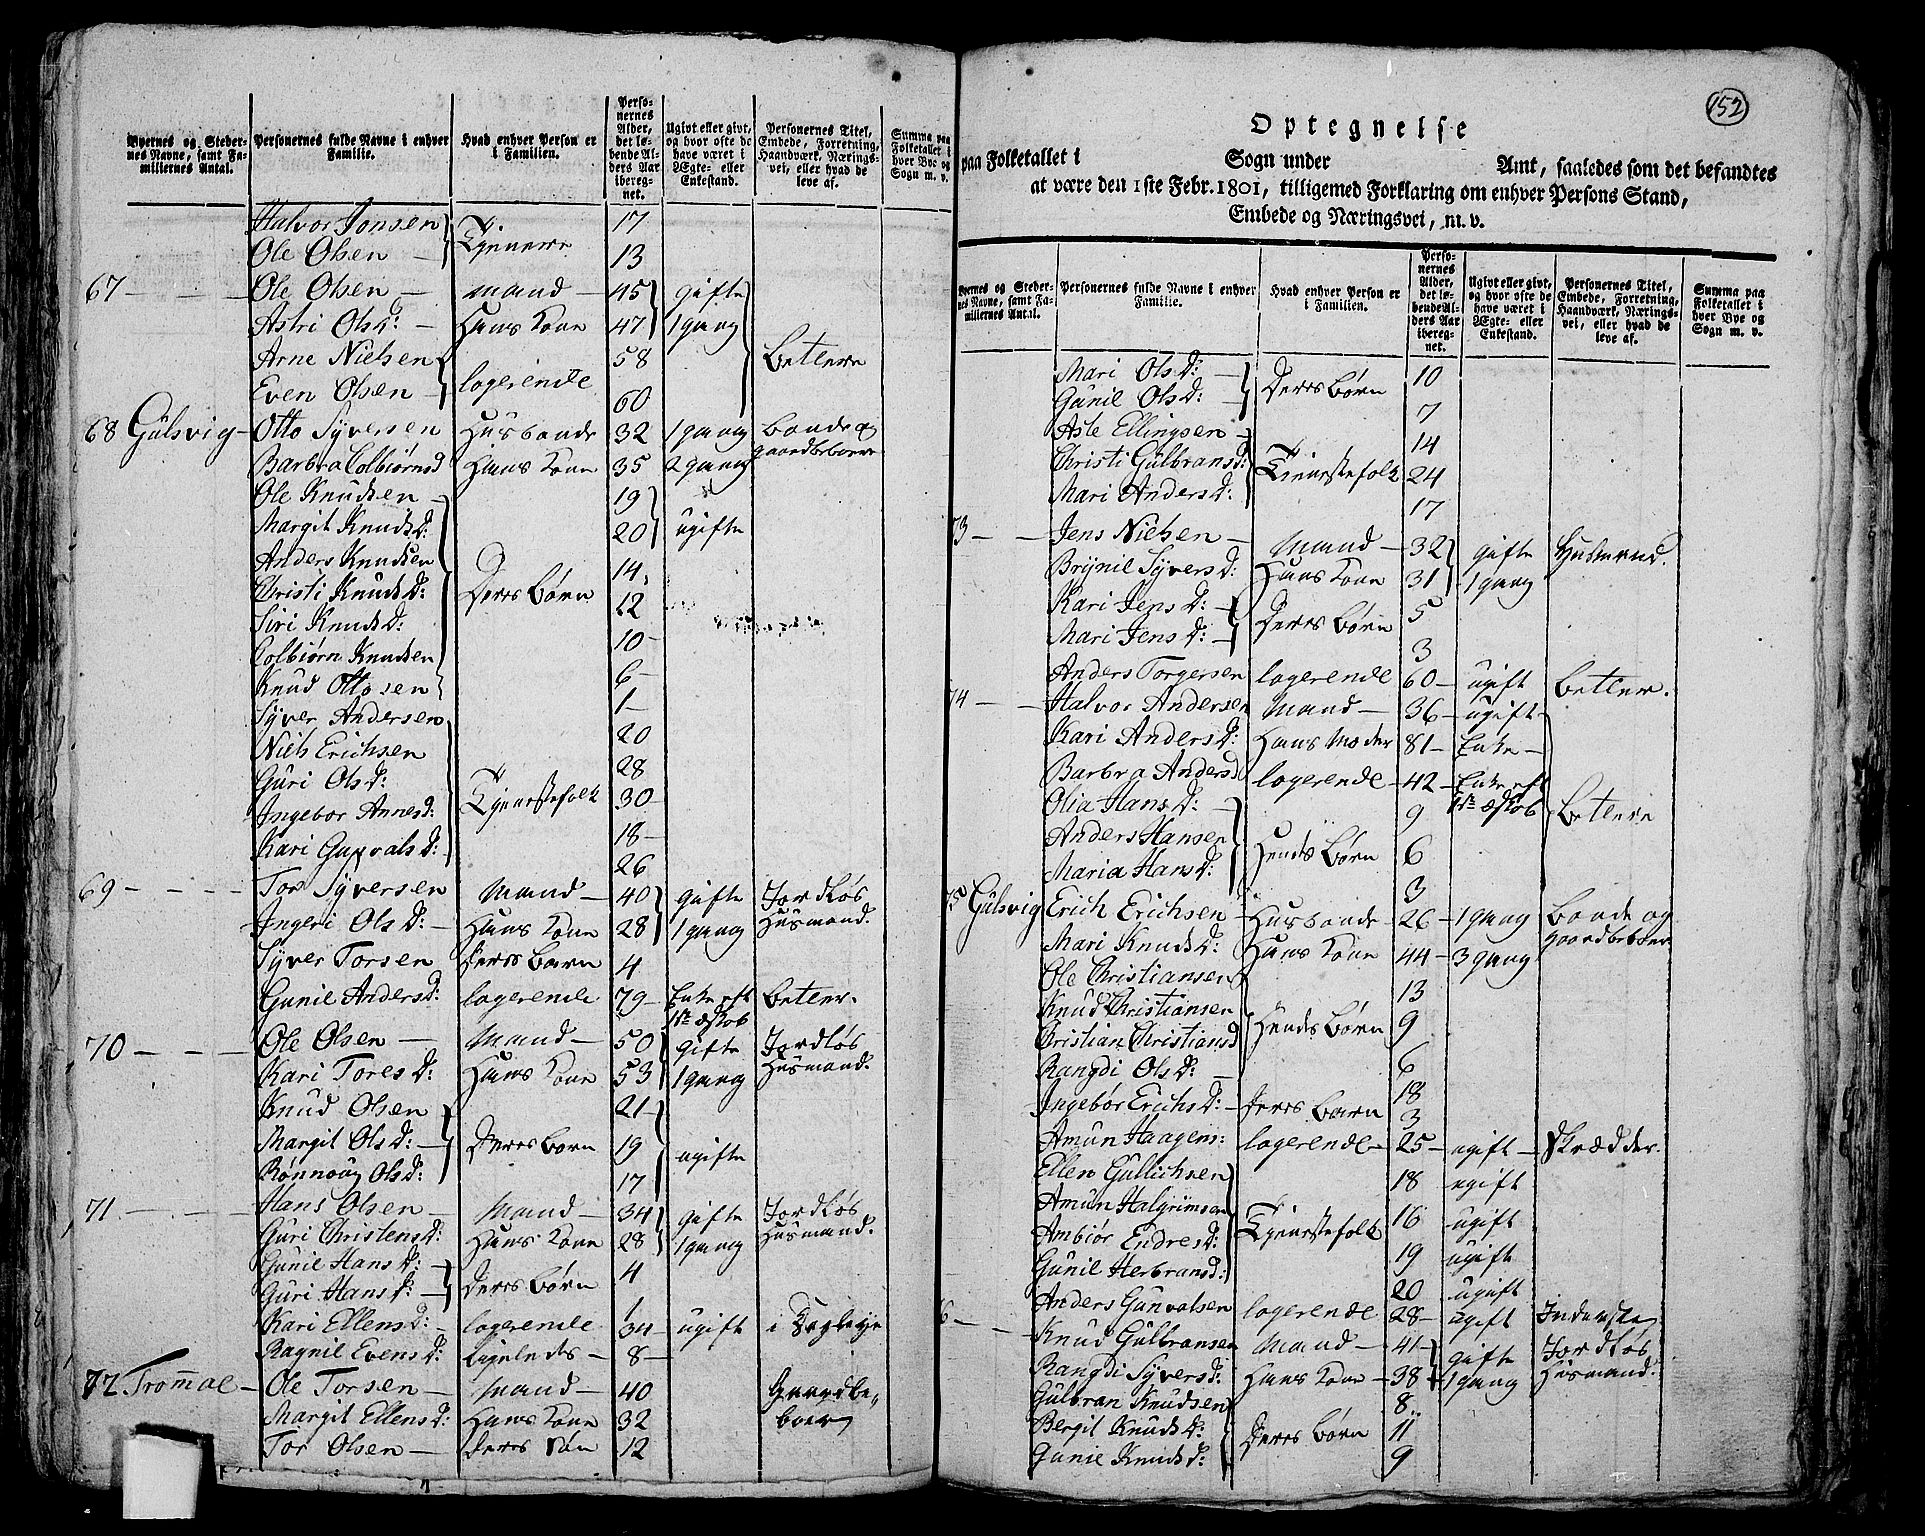 Byernes og Steder-
nes Navne, samt Fa-
miliernes Antal.
Personernes fulde Navne i enhver
Familie.
Hvad enhver Person er
i Familien.
Perso-
nernes
Alder,
det lø-
bende Al-
ders Aar
ibereg-
net.
Ugivt eller givt,
og hvor ofte de
have været i
Ægte- eller
Enkestand.
Personernes Titel,
Embede, Forretning,
Haandværk, Nærings-
vei, eller hvad de
leve af.
Summa paa
Folketallet i
hver Bye og
Sogn m. v.
Halvor Jonsen Tjenere 17
Ole Olsen 13
67 Ole Olsen Mand 45 gifte
Astri Olsd: Hans Kone 47 1 gang
Arne Nielsen logerende 58 Betlere
Even Olsen 60
68 Gulsvig Otto Syversen Husbonde 32 1 gang Bonde og
Barbra Colbiørnsd Hans Kone 35 2 gang gaardbeboere
Ole Knudsen 19
Margit Knudsd: 20 ugifte
Anders Knudsen 14
Christi Knudsd: Deres Børn 12
Siri Knudsd: 10
Colbiørn Knudsen 6
Knud Ottosen 1
Syver Andersen 20
Niels Erichsen 28
Guri Olsd: Tjenestefolk 30
Ingebor Annesd: 18
Kari Gunvalsd: 26
69 Tor Syversen Mand 40 gifte Jordløs
Ingeri Olsd: Hans Kone 28 1 gang Husmand.
Syver Torsen Deres Barn 4
Gunil Andersd: logerende 79 Enke eft Betler.
1ste Ægtsk
70 Ole Olsen Mand 50 gifte Jordløs
Kari Toresd: Hans Kone 53 1 gang Husmand.
Knud Olsen 21
Margit Olsd: Deres Børn 19 ugifte
Rønnoug Olsd: 17
71 Hans Olsen Mand 34 gifte Jordløs
Guri Christensd: Hans Kone 28 1 gang Husmand.
Gunil Hansd: Deres Børn 4
Guri Hansd: 1
Kari Ellensd: logerende 34 ugift i
Ragnil Evensd: ligeledes 8
72 Trommal Ole Torsen Mand 40 Gaardbe-
Margit Ellensd: Hans Kone 32 boer
Tor Olsen Deres Søn 12
152
Optegnelse
paa Folketallet i Sogn under Amt, saaledes som det befandtes
at være den 1ste Febr. 1801, tilligemed Forklaring om enhver Persons Stand,
Embede og Næringsvei, m. v.
Byernes og Steder-
nes Navne, samt Fa-
miliernes Antal.
Personernes fulde Navne i enhver
Familie.
Hvad enhver Person er
i Familien.
Perso-
nernes
Alder,
det lø-
bende Al-
ders Aar
ibereg-
net.
Ugivt eller givt,
og hvor ofte de
have været i
Ægte- eller
Enkestand.
Personernes Titel,
Embede, Forretning,
Haandværk, Nærings-
vei, eller hvad de
leve af.
Summa paa
Folketallet i
hver Bye og
Sogn m. v.
Mari Olsd: Deres Børn 10
Gunil Olsd: 7
Asle Ellingsen 14
Christi Gulbransd: Tjenestefolk 24
Mari Andersd: 17
73 Jens Nielsen Mand 32 gifte Husmand.
Brynil Syversd: Hans Kone 31 1 gang
Kari Jensd: Deres Børn 5
Mari Jensd: 3
Anders Torgersen logerende 60 ugift Betler.
74 Halvor Andersen Mand 36 ugift
Kari Andersd: Hans Moder 81 Enke
Barbra Andersd logerende 42 Enke eft
Olia Hansd: 9 1ste Ægtsk Betlere
Anders Hansen Hendes Børn 6
Maria Hansd: 3
75 Gulsvig Erich Erichsen Husbonde 26 1 gang Bonde og
Mari Knudsd: Hans Kone 44 3 gang gaardbeboer
Ole Christiansen 13
Knud Christiansen Hendes Børn 9
Christian Christiansd 6
Rangdi Olsd: 18
Ingebør Erichsd: Deres Barn 3
Amun Haagens: logerende 25 ugift Skrædder.
Ellen Gullichsen 18 ugift
Amun Halgrimsen Tjenestefolk 16 ugift
Ambiør Endresd: 19 ugift
Gunil Herbransd: 20 ugift
Anders Gunvalsen logerende 28 ugift Inderste
6 Knud Gulbransen Mand 41 gifte Jordløs
Rangdi Syversd: Hans Kone 38 1 gang Husmand.
Gulbran Knudsen 8
Bergit Knudsd: Deres Børn 11
Gunil Knudsd: 9